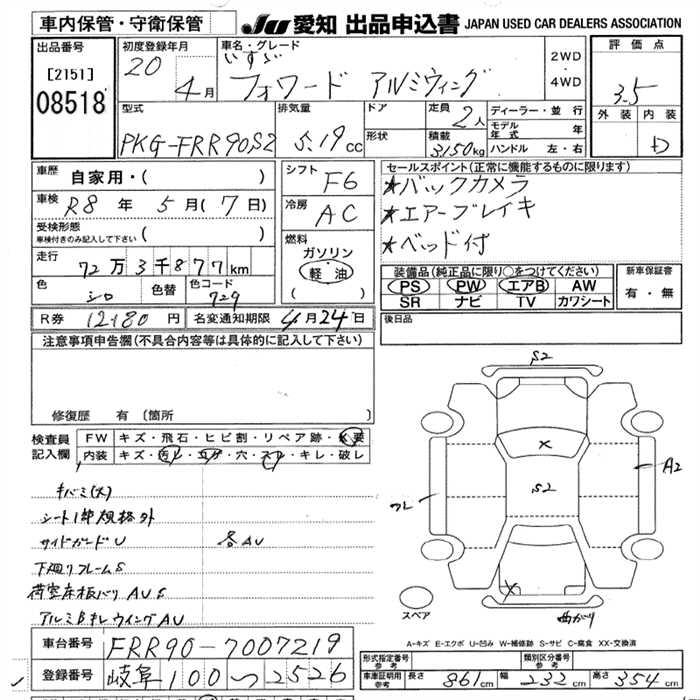 車内保管・守衛保管
JU 愛知 出品申込書 JAPAN USED CAR DEALERS ASSOCIATION
出品番号 [2151] 08518
初度登録年月 20 4月
車名・グレード いすゞ フォワード アルミウィング
2WD ・ 4WD
評価点 3.5
外装 内装 D
型式 PKG-FRR90S2
排気量 5.19 cc
ドア 形状
定員 2人
積載 3150kg
ディーラー・並行
モデル年式 年
ハンドル 左・右
車歴 自家用・( )
車検 R8年 5月(7日)
受検形態 車検付きのみ記入して下さい ( )
走行 72万3千877km
色 シロ 色替 色コード 729
シフト F6
冷房 AC
燃料 ガソリン 軽油 ( )
セールスポイント(正常に機能するものに限ります)
★バックカメラ
★エアーブレイキ
★ベッド付
装備品(純正品に限り○をつけてください)
PS PW エアB AW
SR ナビ TV カワシート
新車保証書 有・無
R券 12180円 名変通知期限 4月24日
後日品
注意事項申告欄(不具合内容等は具体的に記入して下さい)
修復歴 有 〔箇所 〕
検査員記入欄
FW キズ・飛石・ヒビ割・リペア跡・X要
内装 キズ・汚レ・コゲ・穴・スレ・キレ・破レ
キバミ(大)
シート1部規格外
サイドガードU 各AU
下廻りフレームS
荷室床板バリ AUS
アルミBキレ ウイングAU
S2
X
S2
A2
フレ
X
曲がり
スペア
A-キズ E-エクボ U-凹み W-補修跡 S-サビ C-腐食 XX-交換済
車台番号 FRR90-7007219
登録番号 岐阜 100 つ 2526
形式指定番号 参考
類別区分番号 参考
車庫証明用 参考 長さ 861cm 幅 232cm 高さ 354cm